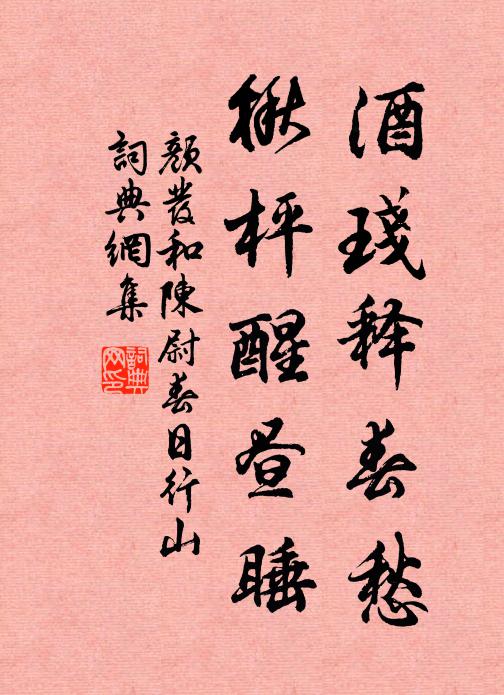 酒琖释春愁
楸枰醒昼睡
顏發和陳尉春日行山
詞典網集
詞典網印